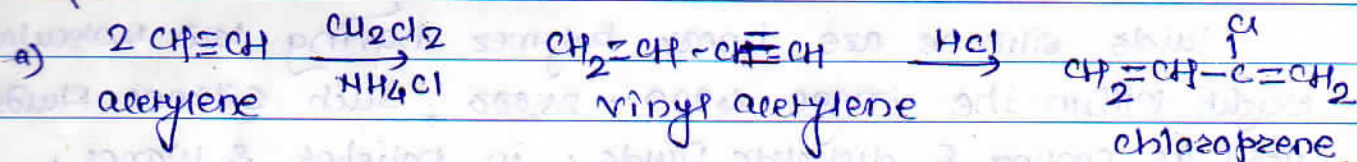 a) 2 CH≡CH $\xrightarrow[NH_4Cl]{CU_2Cl_2}$ CH₂=CH-CH≡CH $\xrightarrow{HCl}$ CH₂=CH-C(Cl)=CH₂
acetylene vinyl acetylene chloroprene